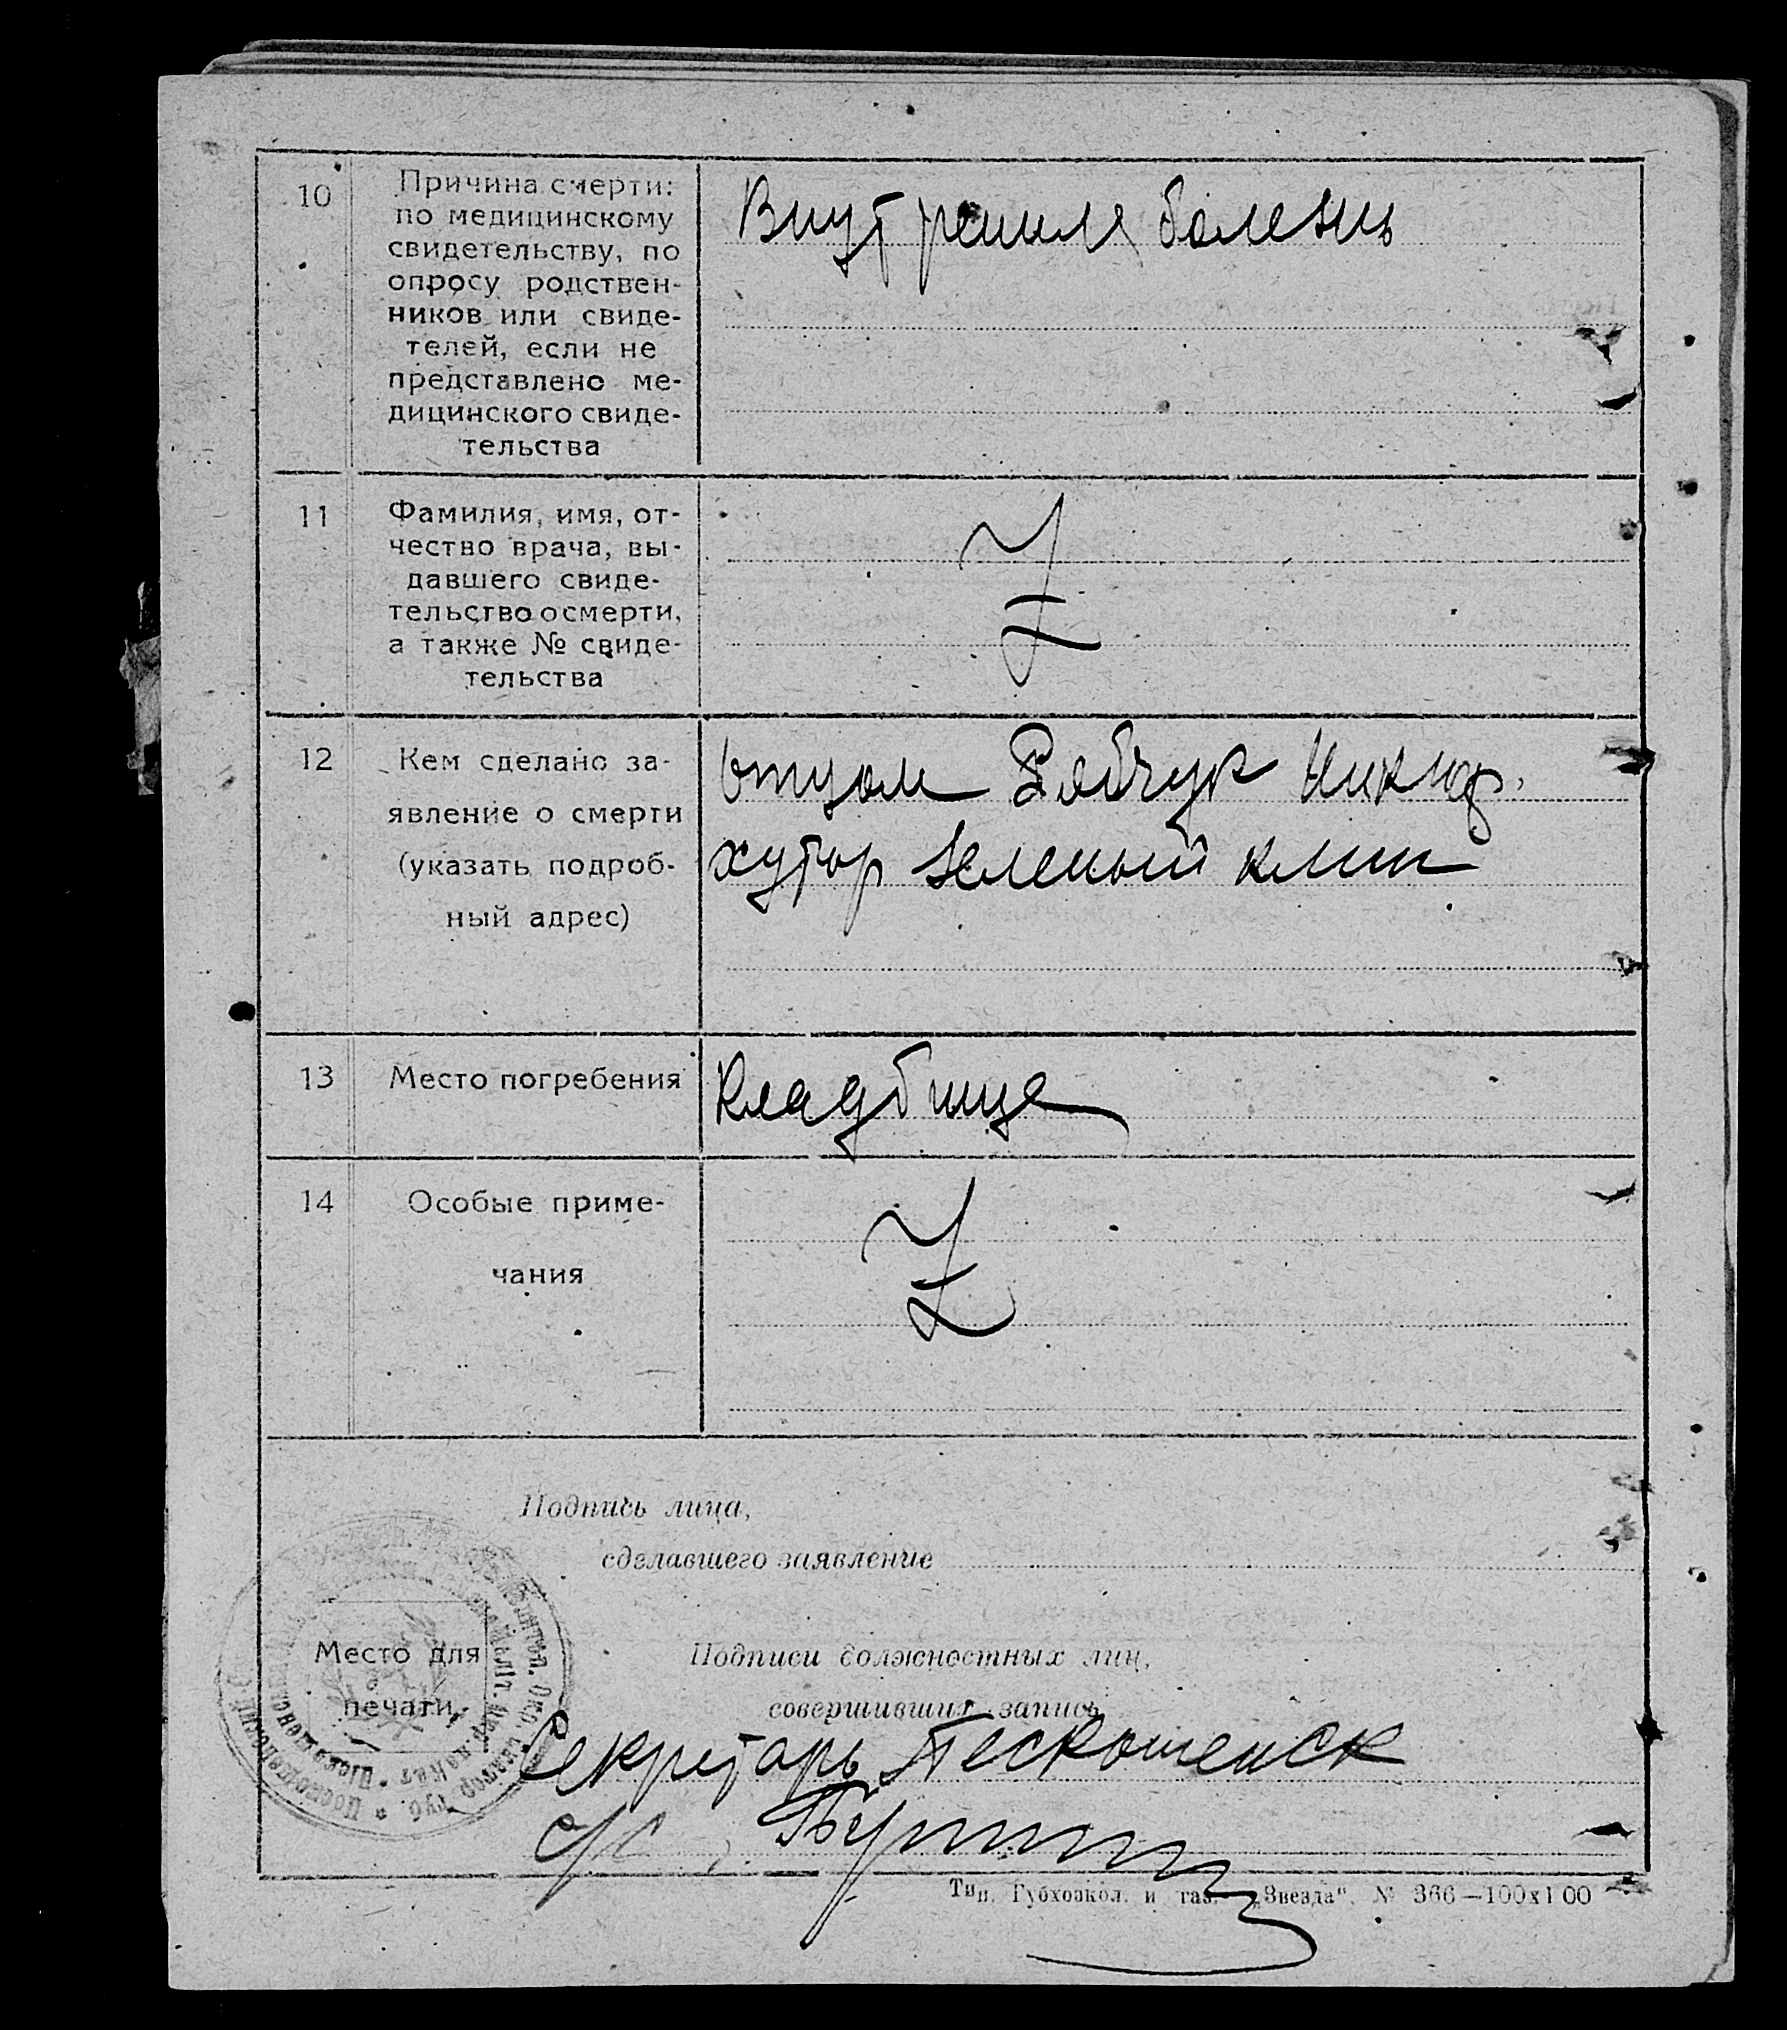 10
Причина смерти:
по медицинскому
свидетельству, по
опросу родствен-
ников или свиде-
телей, если не
представлено ме-
дицинского свиде-
тельства
Внутренняя болезнь
11
Фамилия, имя, от-
чество врача, вы-
давшего свиде-
тельство о смерти,
а также № свиде-
тельства
12
Кем сделано за-
явление о смерти
(указать подроб-
ный адрес)
отцом Рябчук
хутор Зеленый клин
13
Место погребения
Кладбище
14
Особые приме-
чания
Подпись лица,
сделавшего заявление
Место для
печати
Подписи должностных лиц,
совершивших запись
Секретарь
Тип. Губхозкол. и газ. „Звезда“. № 366—100х100